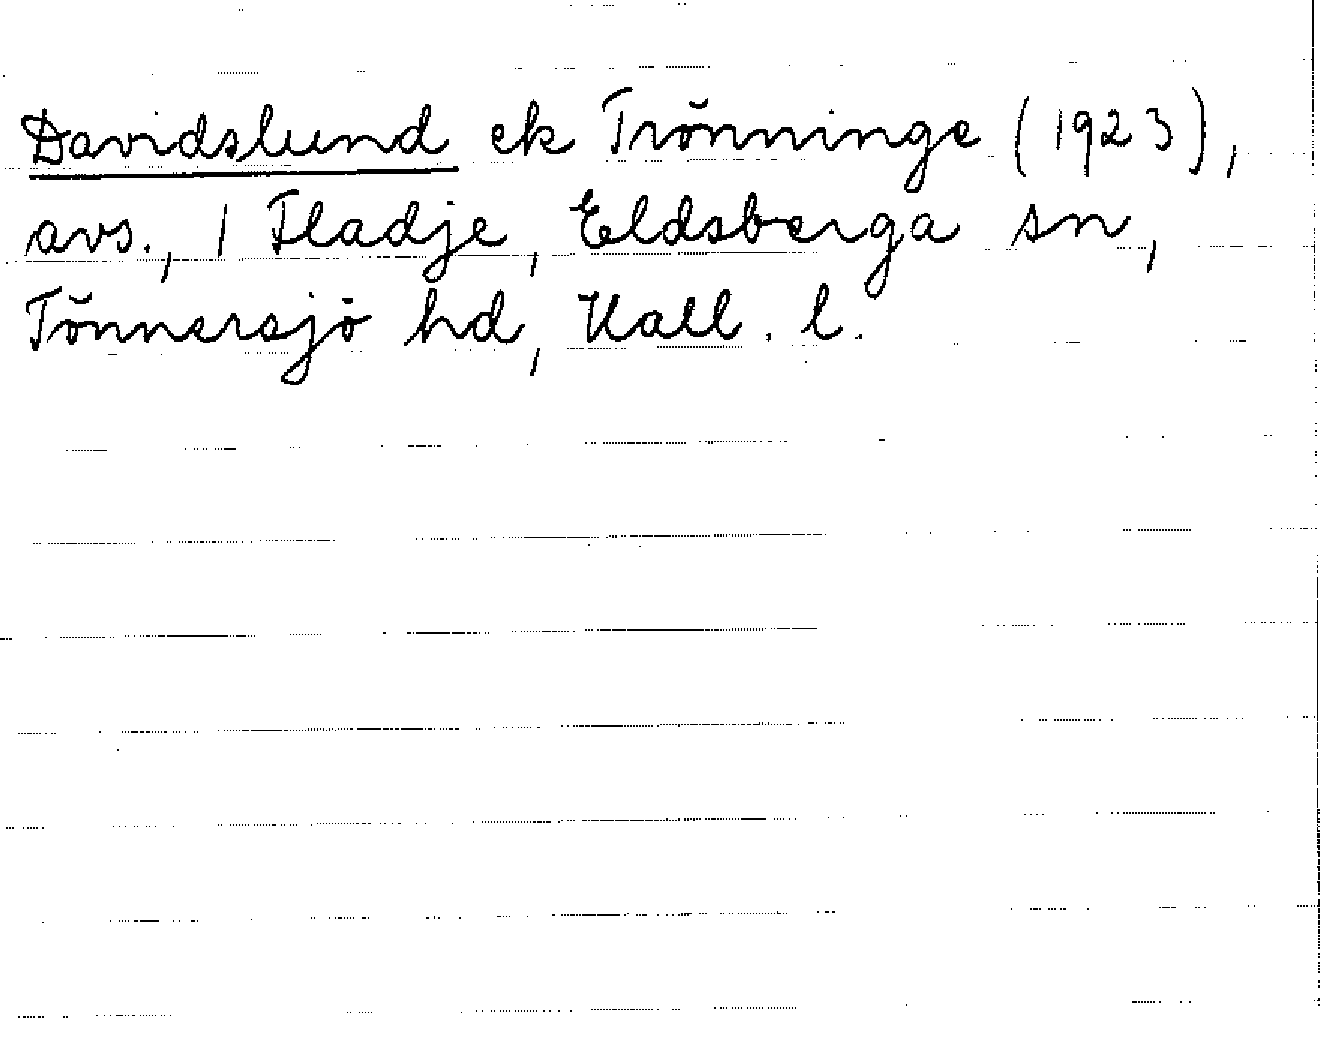 Davidslund ek Trönninge (1923),
avs., 1 Fladje, Eldsberga sn,
Tönnersjö hd, Hall. l.